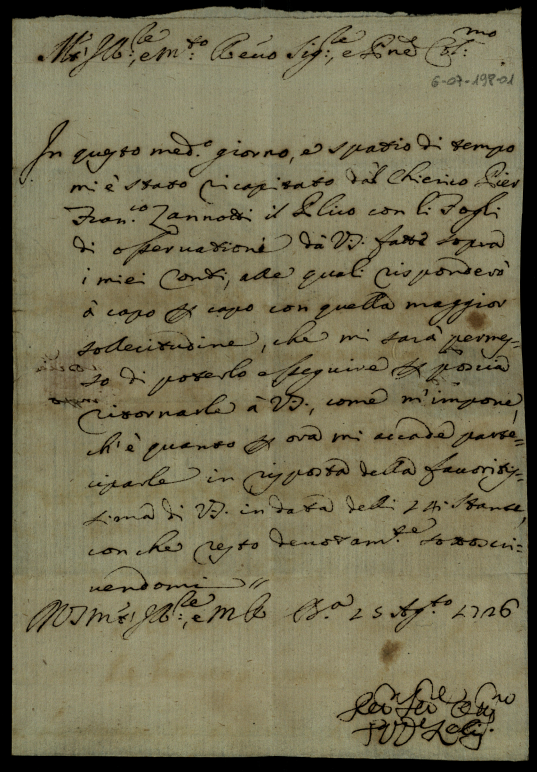 M.to Ill.re, e M.to Reu.do Sig.re, e Pne Col.mo
6-07-198-01
In questo med.o giorno, e spatio di tempo
mi è stato ricapitato dal Chierico Pier
Fran.co Zannotti il Plico con li Fogli
di osseruatione dà VS. fatte sopra
i miei Conti, alle quali risponderò
à capo p capo con quella maggior
sollecitudine, che mi sarà permes=
so di poterlo esseguire p poscia
ritornarle à VS., come m'impone,
ch'è quanto p ora mi accade parte=
ciparle in risposta della fauoritis=
sima di VS. in data delli 24 stante,
con che resto deuotam.te sottoscri=
uendomi
VS M.to Ill.re, e M R B.a 25 Ag.to 1726